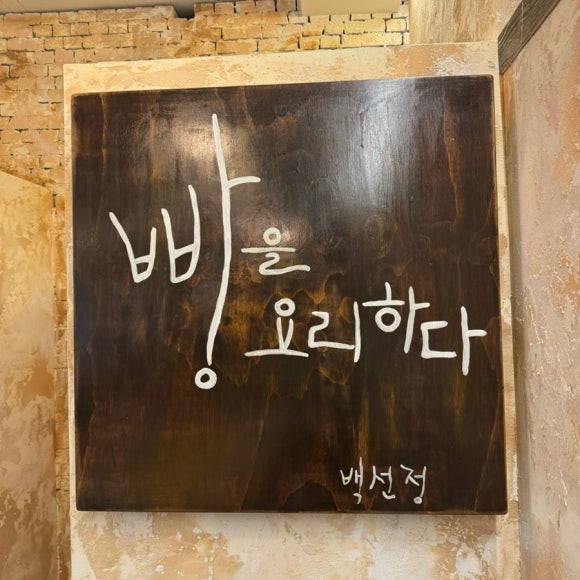 빵을
요리하다
백선정